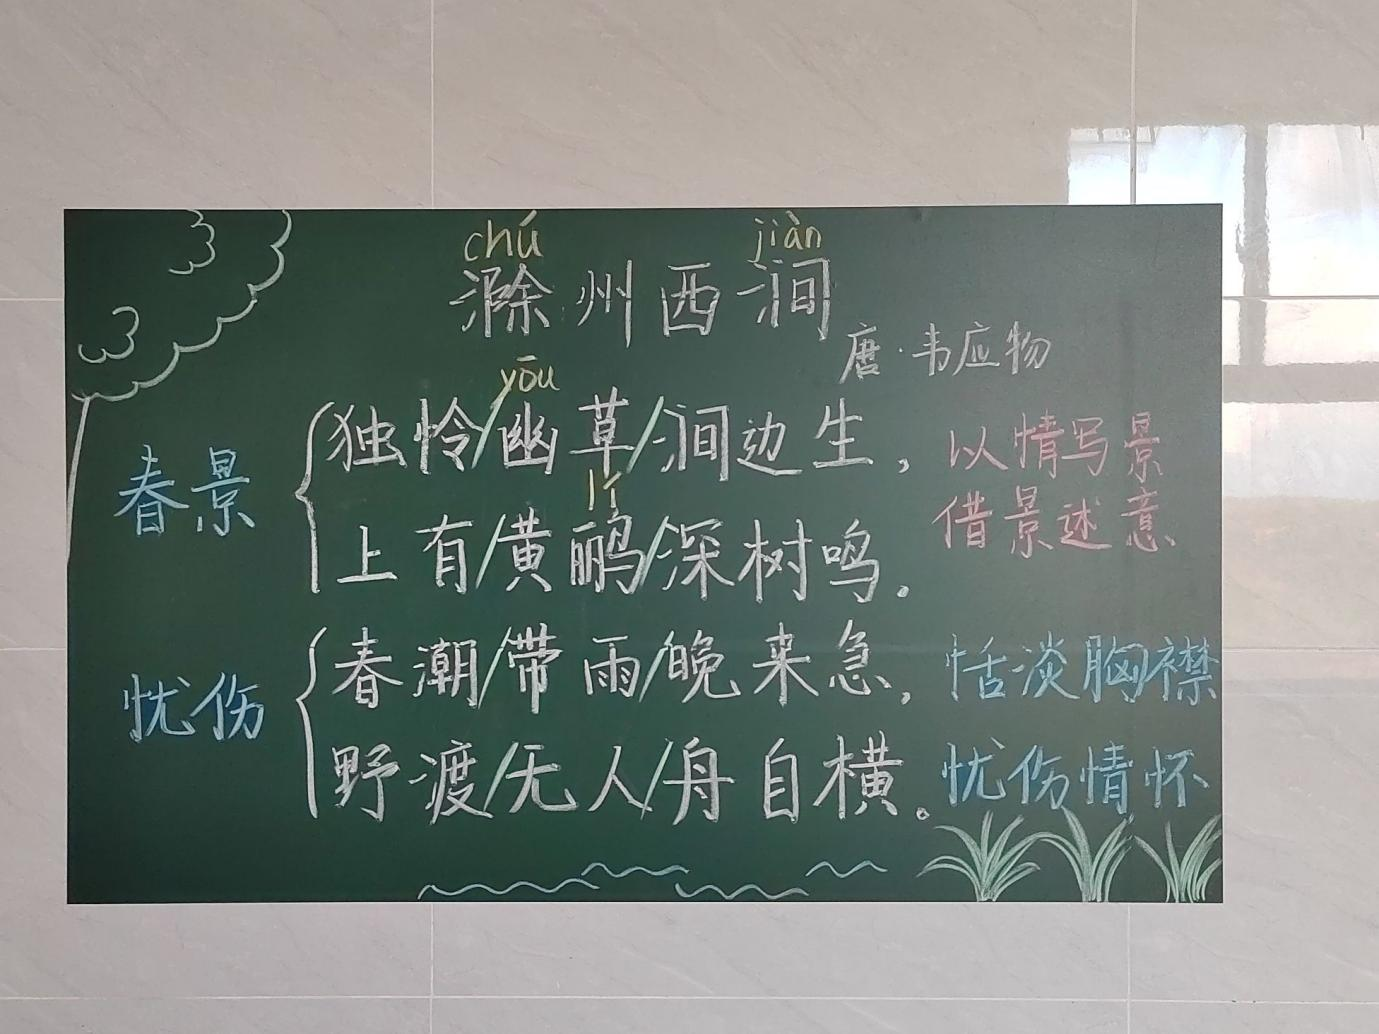 chú jiàn
滁州西涧
唐·韦应物
yōu
独怜/幽草/涧边生，
以情写景
春景
借景述意
lí
上有/黄鹂/深树鸣.
春潮/带雨/晚来急，
恬淡胸襟
忧伤
野渡/无人/舟自横。
忧伤情怀